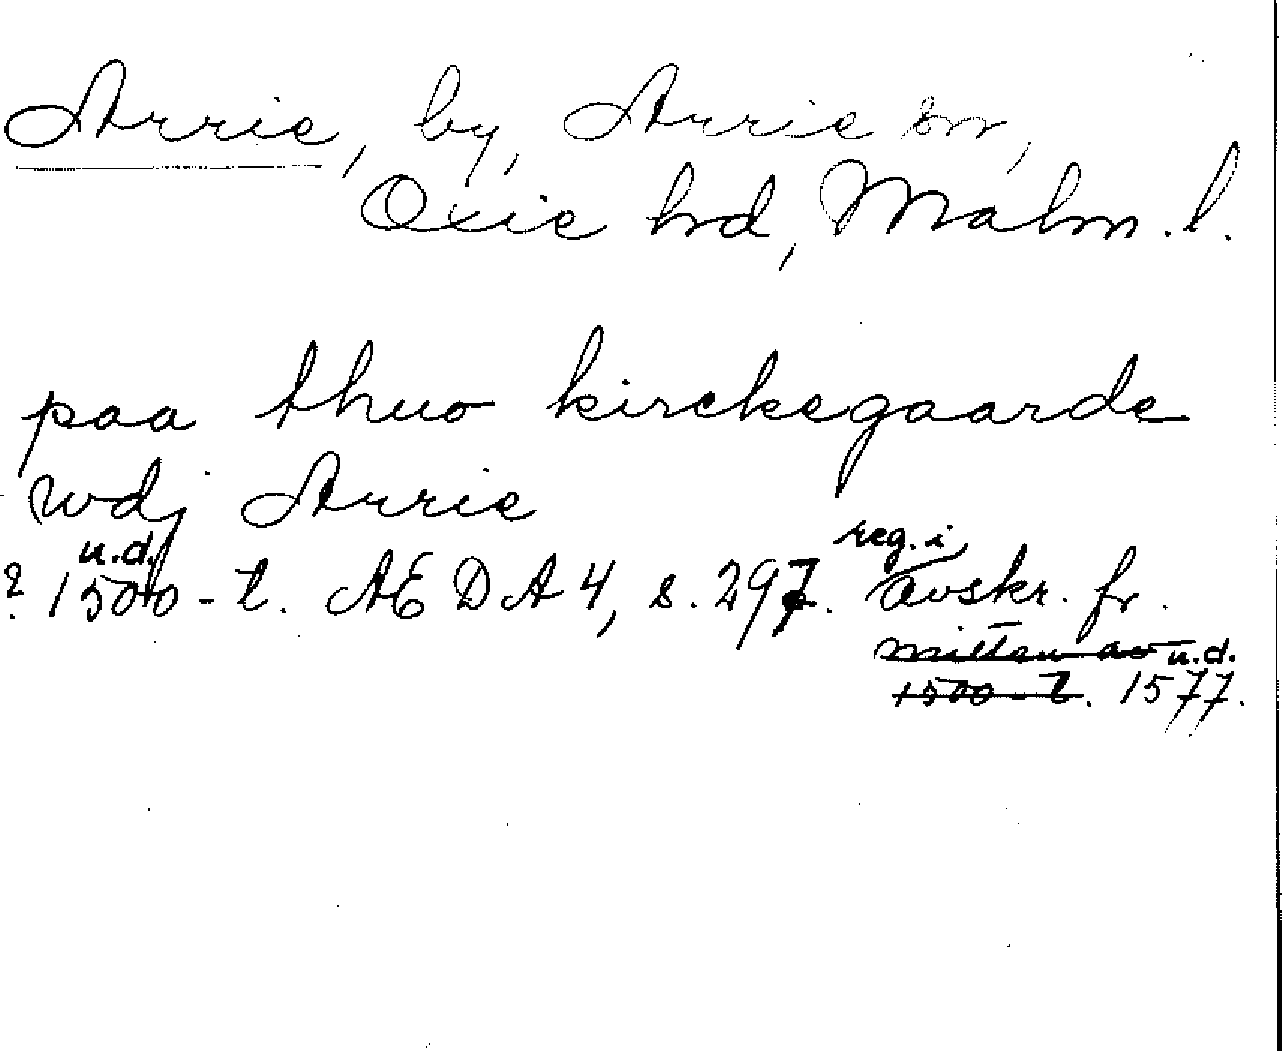 Arrie, by, Arrie sn,
Oxie hd, Malm. l.
paa thuo kirckegaarde
wdj Arrie
u.d.
? 1500-t. AEDA 4, s. 297. reg. i avskr. fr.
mitten av u.d.
1500-t. 1577.